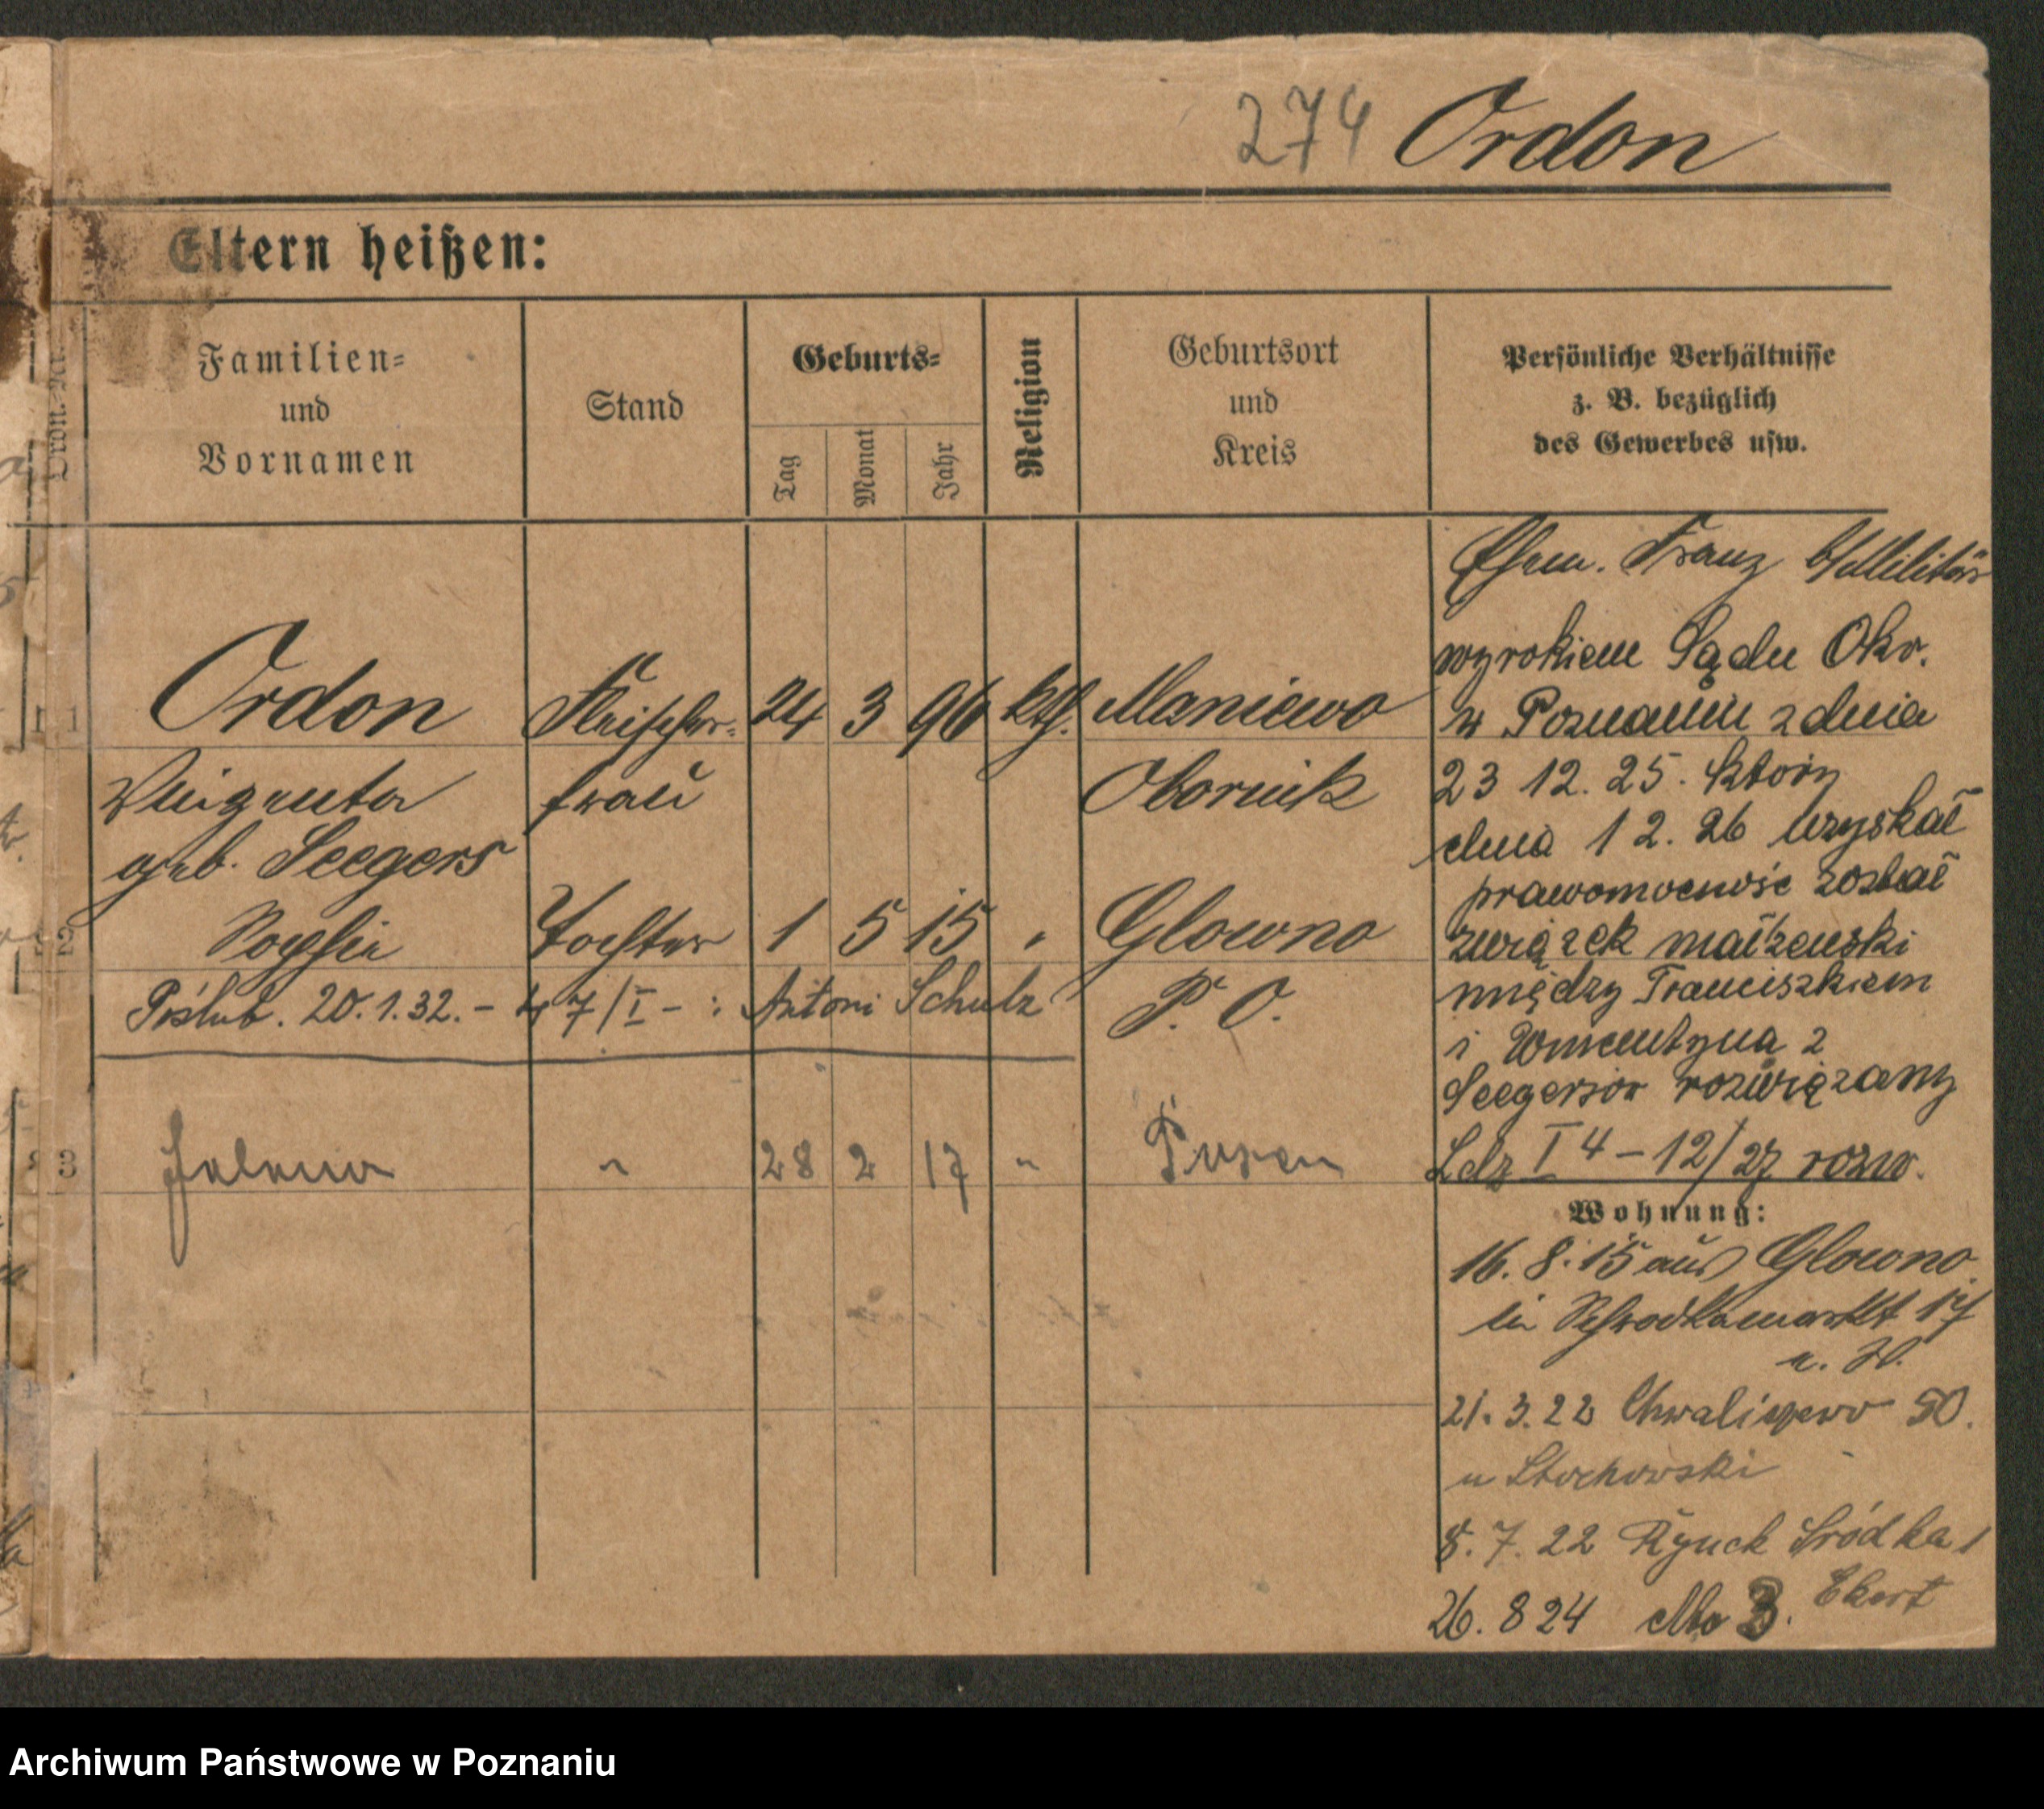 274 Ordon
Eltern heißen:
Familien-
und
Vornamen
Stand
Geburts-
Tag
Monat
Jahr
Religion
Geburtsort
und
Kreis
Persönliche Verhältnisse
z. B. bezüglich
des Gewerbes usw.
Ehem. Franz b/Militär
1 Ordon Fleischer- 24 3 96 kth. Maniewo
frau Obornik
geb. Seegers
2 Sophie Tochter 1 5 15 " Glowno
Poślub. 20.1.32. – 47/I – : Antoni Schulz P. O.
3 Helena " 28 2 17 " Posen
wyrokiem Sądu Okr.
w Poznaniu z dnia
23 12. 25. który
dnia 1 2. 26 uzyskał
prawomocność został
związek małżeński
między Franciszkiem
i Wincentyną z
Seegersów rozwiązany
Ldz I 4 – 12/27 rozw.
Wohnung:
16. 8. 15 aus Glowno
in Schrodkamarkt 17
21. 3. 22 Chwaliszewo 50.
u Stochowski
8. 7. 22 Rynek Śródka 1
26. 8 24 3. Ekert
Archiwum Państwowe w Poznaniu